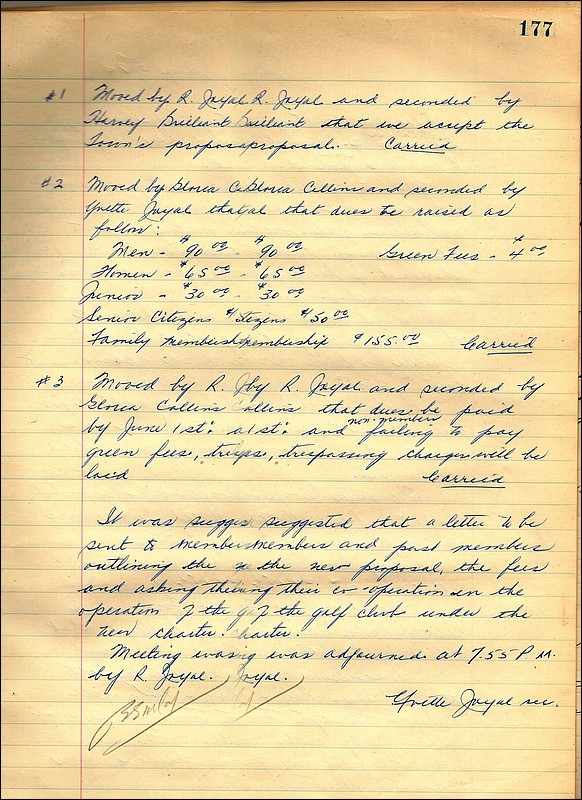 177
#1 Moved by R. Joyal R. Joyal and seconded by
Harvey Brilliant Brilliant that we accept the
Town's proposaproposal. Carried
#2 Moved by Gloria C Gloria Collins and seconded by
Yvette Joyal thatal that dues be raised as
follow:
Men - $90.00 - $90.00 Green Fees - $4.00
Women - $65.00 - $65.00
Junior - $30.00 - $30.00
Senior Citizens $tizens $50.00
Family membershipembership $155.00 Carried
#3 Moved by R. J by R. Joyal and seconded by
Gloria Collins ollins that dues be paid
by June 1st: a 1st: and non-members failing to pay
green fees, tresps, trespassing charges will be
laid Carried
It was sugges suggested that a letter to be
sent to members members and past members
outlining the n the new proposal, the fees
and asking theiing their co-operation in the
operation of the g of the golf club under the
new charter. harter.
Meeting was ig was adjourned at 7.55 P.M.
by R. Joyal. Joyal.
Yvette Joyal sec.